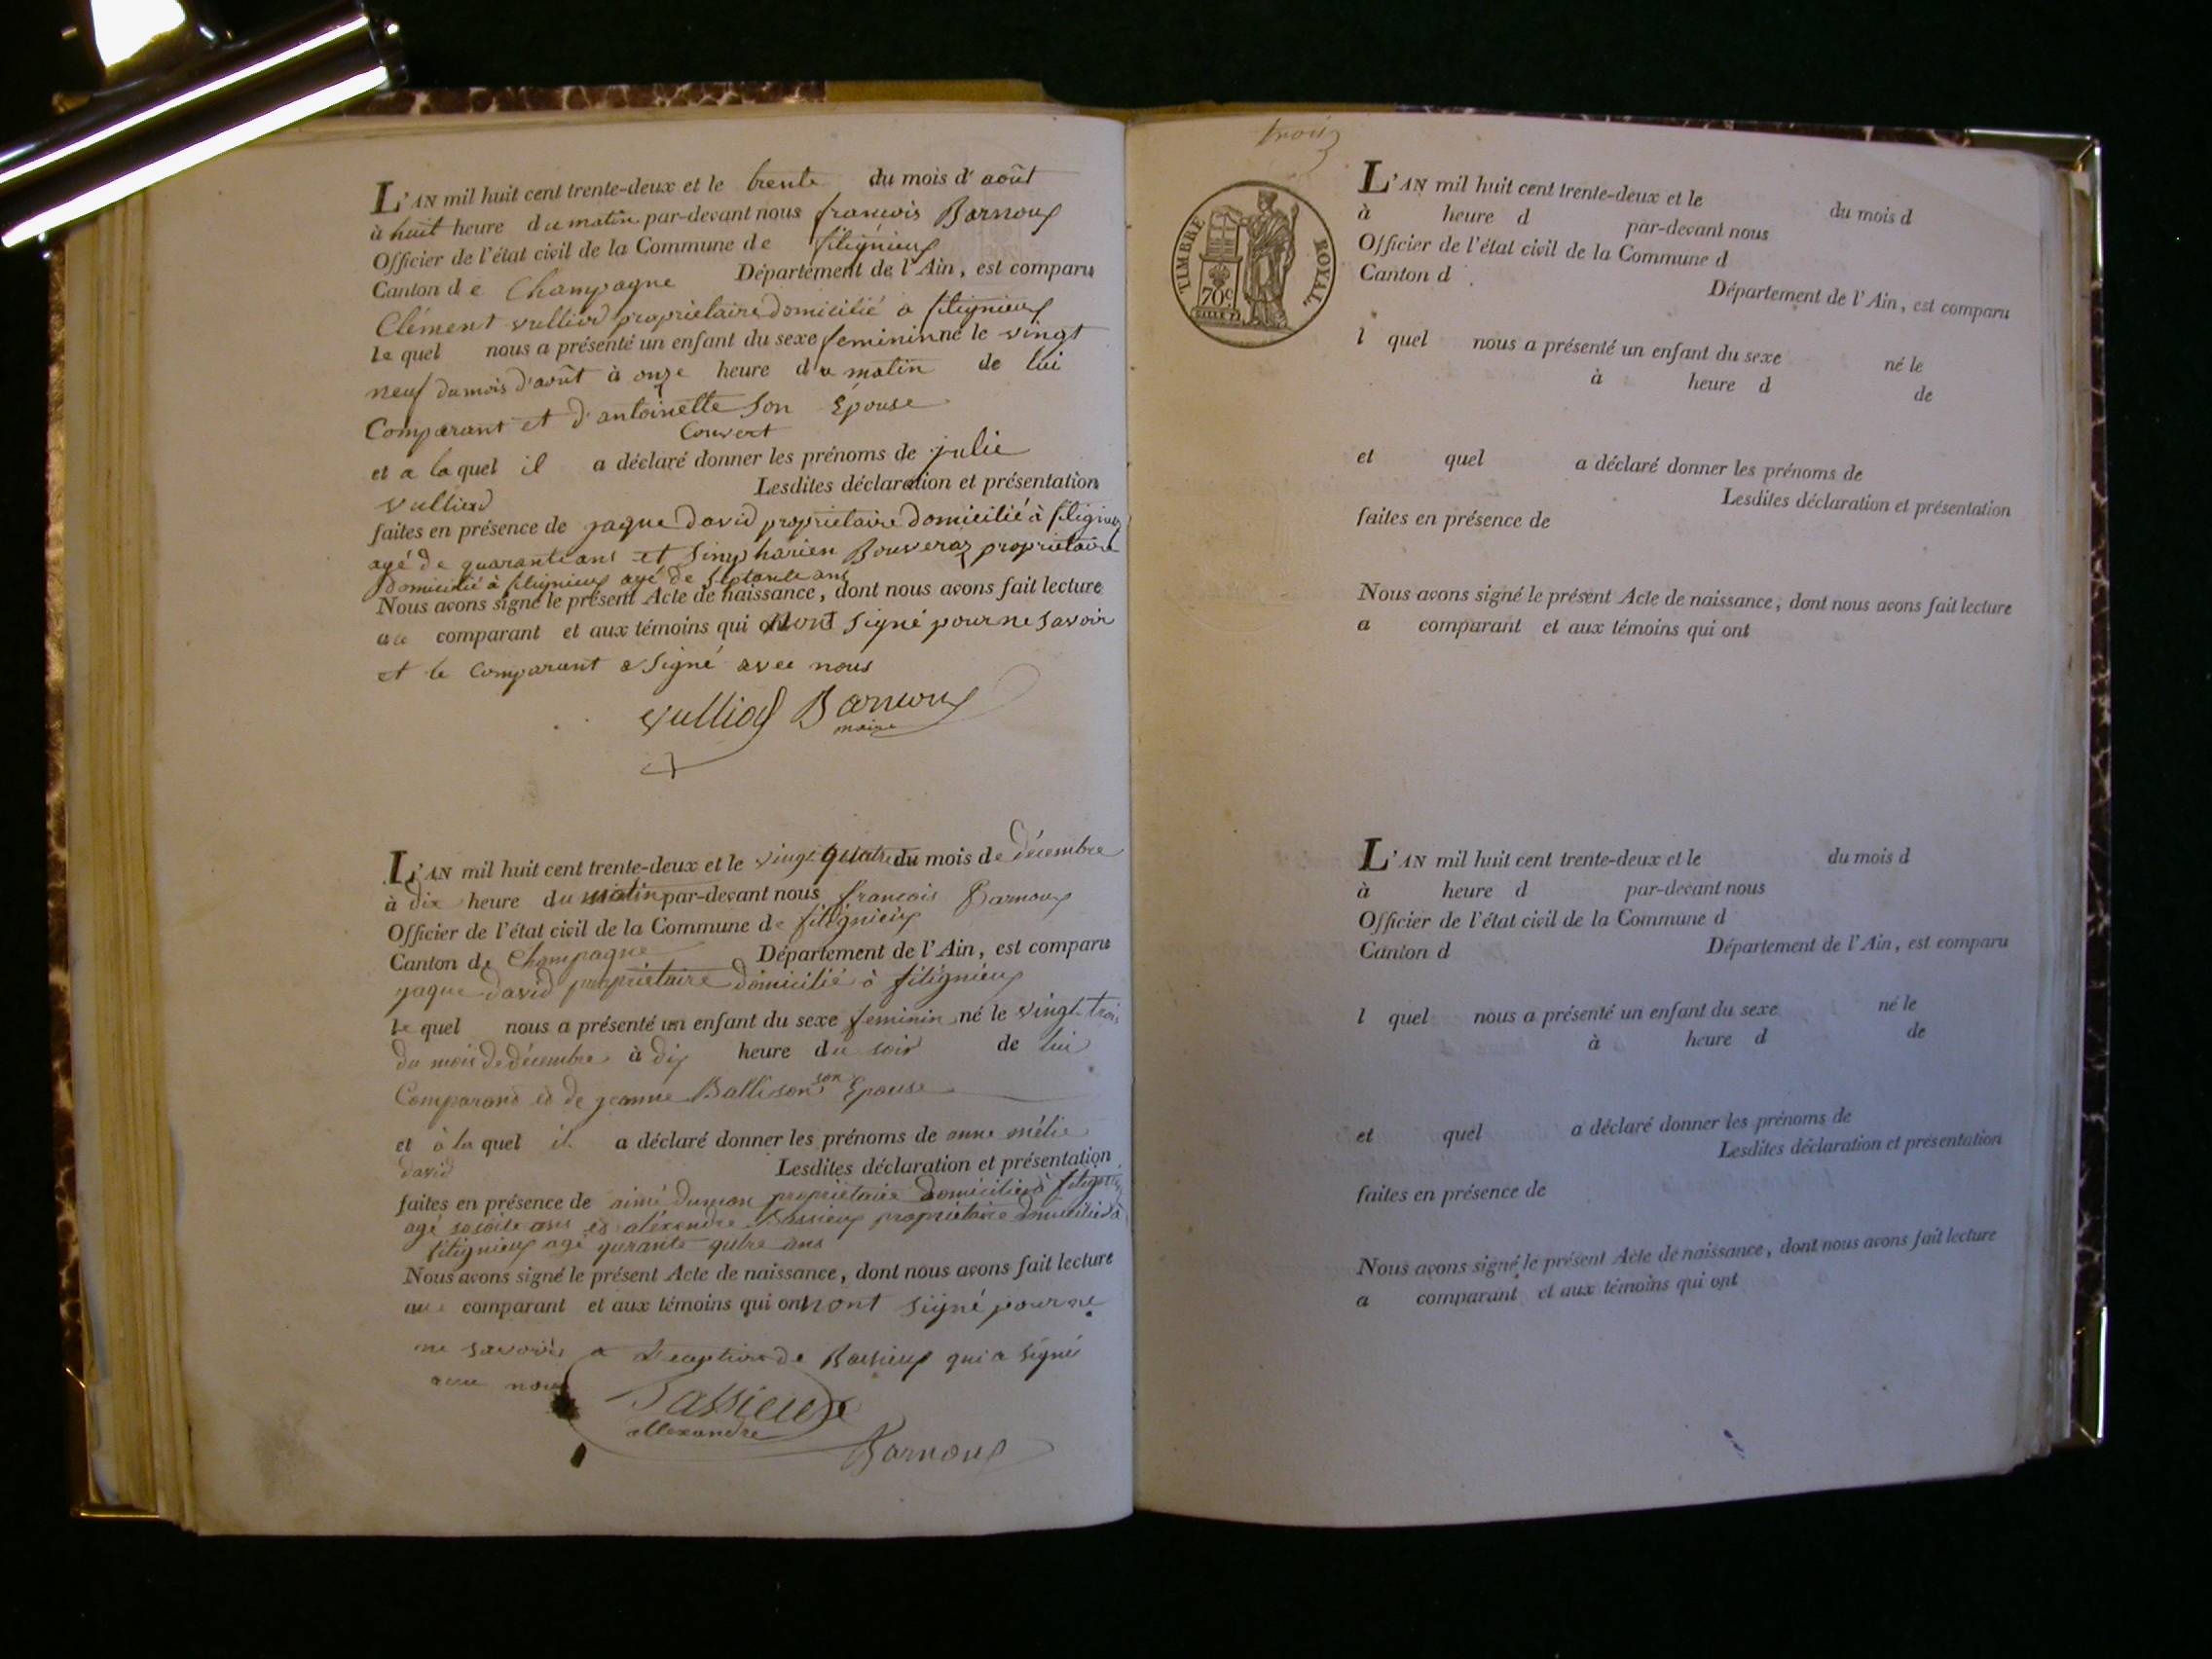 L'AN mil huit cent trente-deux et le trente du mois d'août
à huit heure du matin par-devant nous françois Barnoux
Officier de l'état civil de la Commune de fitignieux
Canton de Champagne Département de l'Ain, est comparu
Clément vulliod proprietaire domicilié a fitignieux
le quel nous a présenté un enfant du sexe feminin né le vingt
neuf du mois d'août à onze heure du matin de lui
Comparant et d'antoinette Son Épouse
Convert
et a la quel il a déclaré donner les prénoms de julie
vulliod Lesdites déclaration et présentation
faites en présence de jaque David proprietaire domicilié à fitignieux
agé de quarante ans et Simpharien Bouveraz proprietaire
domicilié à fitignieux agé de septante ans
Nous avons signé le présent Acte de naissance, dont nous avons fait lecture
au comparant et aux témoins qui ont nont Signé pour ne Savoir
et le Comparant a Signé avec nous
vulliod Barnoux
maire
L'AN mil huit cent trente-deux et le vingt quatre du mois de décembre
à dix heure du matin par-devant nous francois Barnoux
Officier de l'état civil de la Commune de fitignieux
Canton de Champagne Département de l'Ain, est comparu
jaque david proprietaire domicilié à fitignieux
le quel nous a présenté un enfant du sexe feminin né le vingt trois
du mois de décembre à dix heure du soir de lui
Comparand et de jeanne Ballison son Epouse
et à la quel il a déclaré donner les prénoms de anne mélie
david Lesdites déclaration et présentation
faites en présence de aimé dumon proprietaire domicilié à fitignieux
agé ans et aléxandre Bassieux proprietaire domicilié à
fitignieux agé qurante qutre ans
Nous avons signé le présent Acte de naissance, dont nous avons fait lecture
au comparant et aux témoins qui ont nont signé pour ne
ne savoir a de Bassieux qui a signé
avec nous
Bassieux
allexandre
Barnoux
trois
TIMBRE ROYAL
70c
L'AN mil huit cent trente-deux et le du mois d
à heure d par-devant nous
Officier de l'état civil de la Commune d
Canton d Département de l'Ain, est comparu
l quel nous a présenté un enfant du sexe né le
à heure d de
et quel a déclaré donner les prénoms de
Lesdites déclaration et présentation
faites en présence de
Nous avons signé le présent Acte de naissance, dont nous avons fait lecture
a comparant et aux témoins qui ont
L'AN mil huit cent trente-deux et le du mois d
à heure d par-devant nous
Officier de l'état civil de la Commune d
Canton d Département de l'Ain, est comparu
l quel nous a présenté un enfant du sexe né le
à heure d de
et quel a déclaré donner les prénoms de
Lesdites déclaration et présentation
faites en présence de
Nous avons signé le présent Acte de naissance, dont nous avons fait lecture
a comparant et aux témoins qui ont